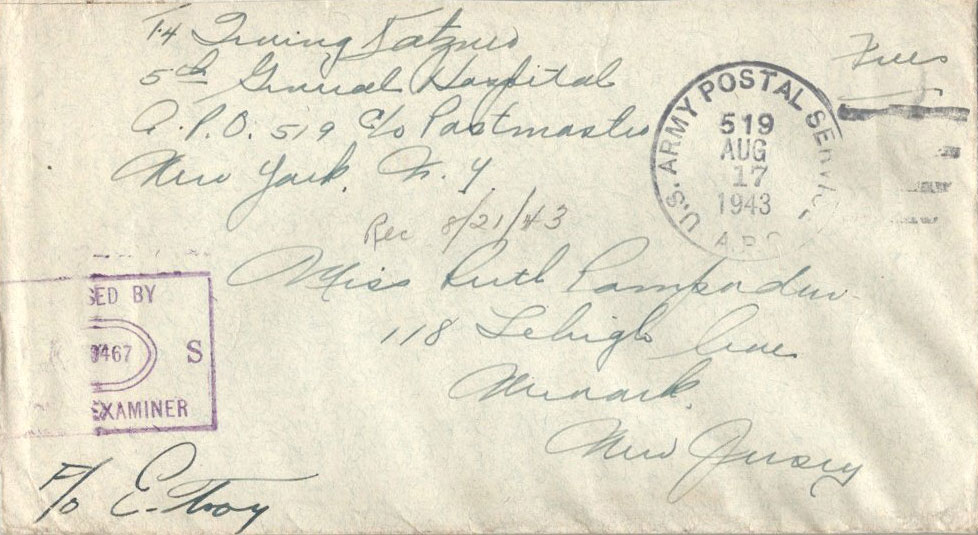 T-4 Irving
5th General Hospital
A.P.O. 519 c/o Postmaster
New York, N.Y.
Free
U.S. ARMY POSTAL SERVICE
519
AUG
17
1943
A.P.O.
Rec 8/21/43
Miss Ruth
118 Lehigh Ave
Newark
New Jersey
SED BY
0467 S
EXAMINER
F/O E. Troy